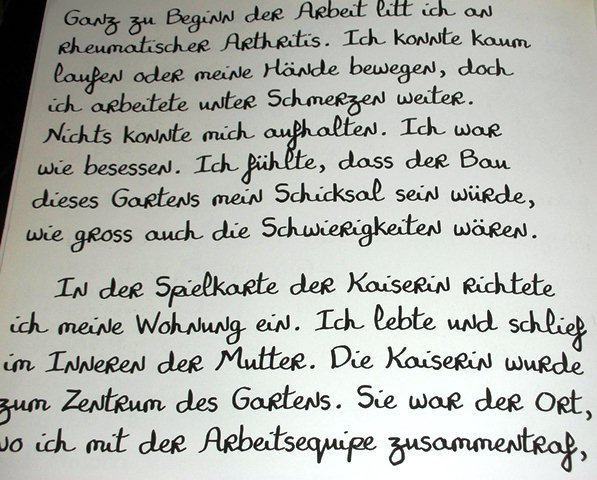 Ganz zu Beginn der Arbeit litt ich an
rheumatischer Arthritis. Ich konnte kaum
laufen oder meine Hände bewegen, doch
ich arbeitete unter Schmerzen weiter.
Nichts konnte mich aufhalten. Ich war
wie besessen. Ich fühlte, dass der Bau
dieses Gartens mein Schicksal sein würde,
wie gross auch die Schwierigkeiten wären.
In der Spielkarte der Kaiserin richtete
ich meine Wohnung ein. Ich lebte und schlief
im Inneren der Mutter. Die Kaiserin wurde
zum Zentrum des Gartens. Sie war der Ort,
wo ich mit der Arbeitsequipe zusammentraf,